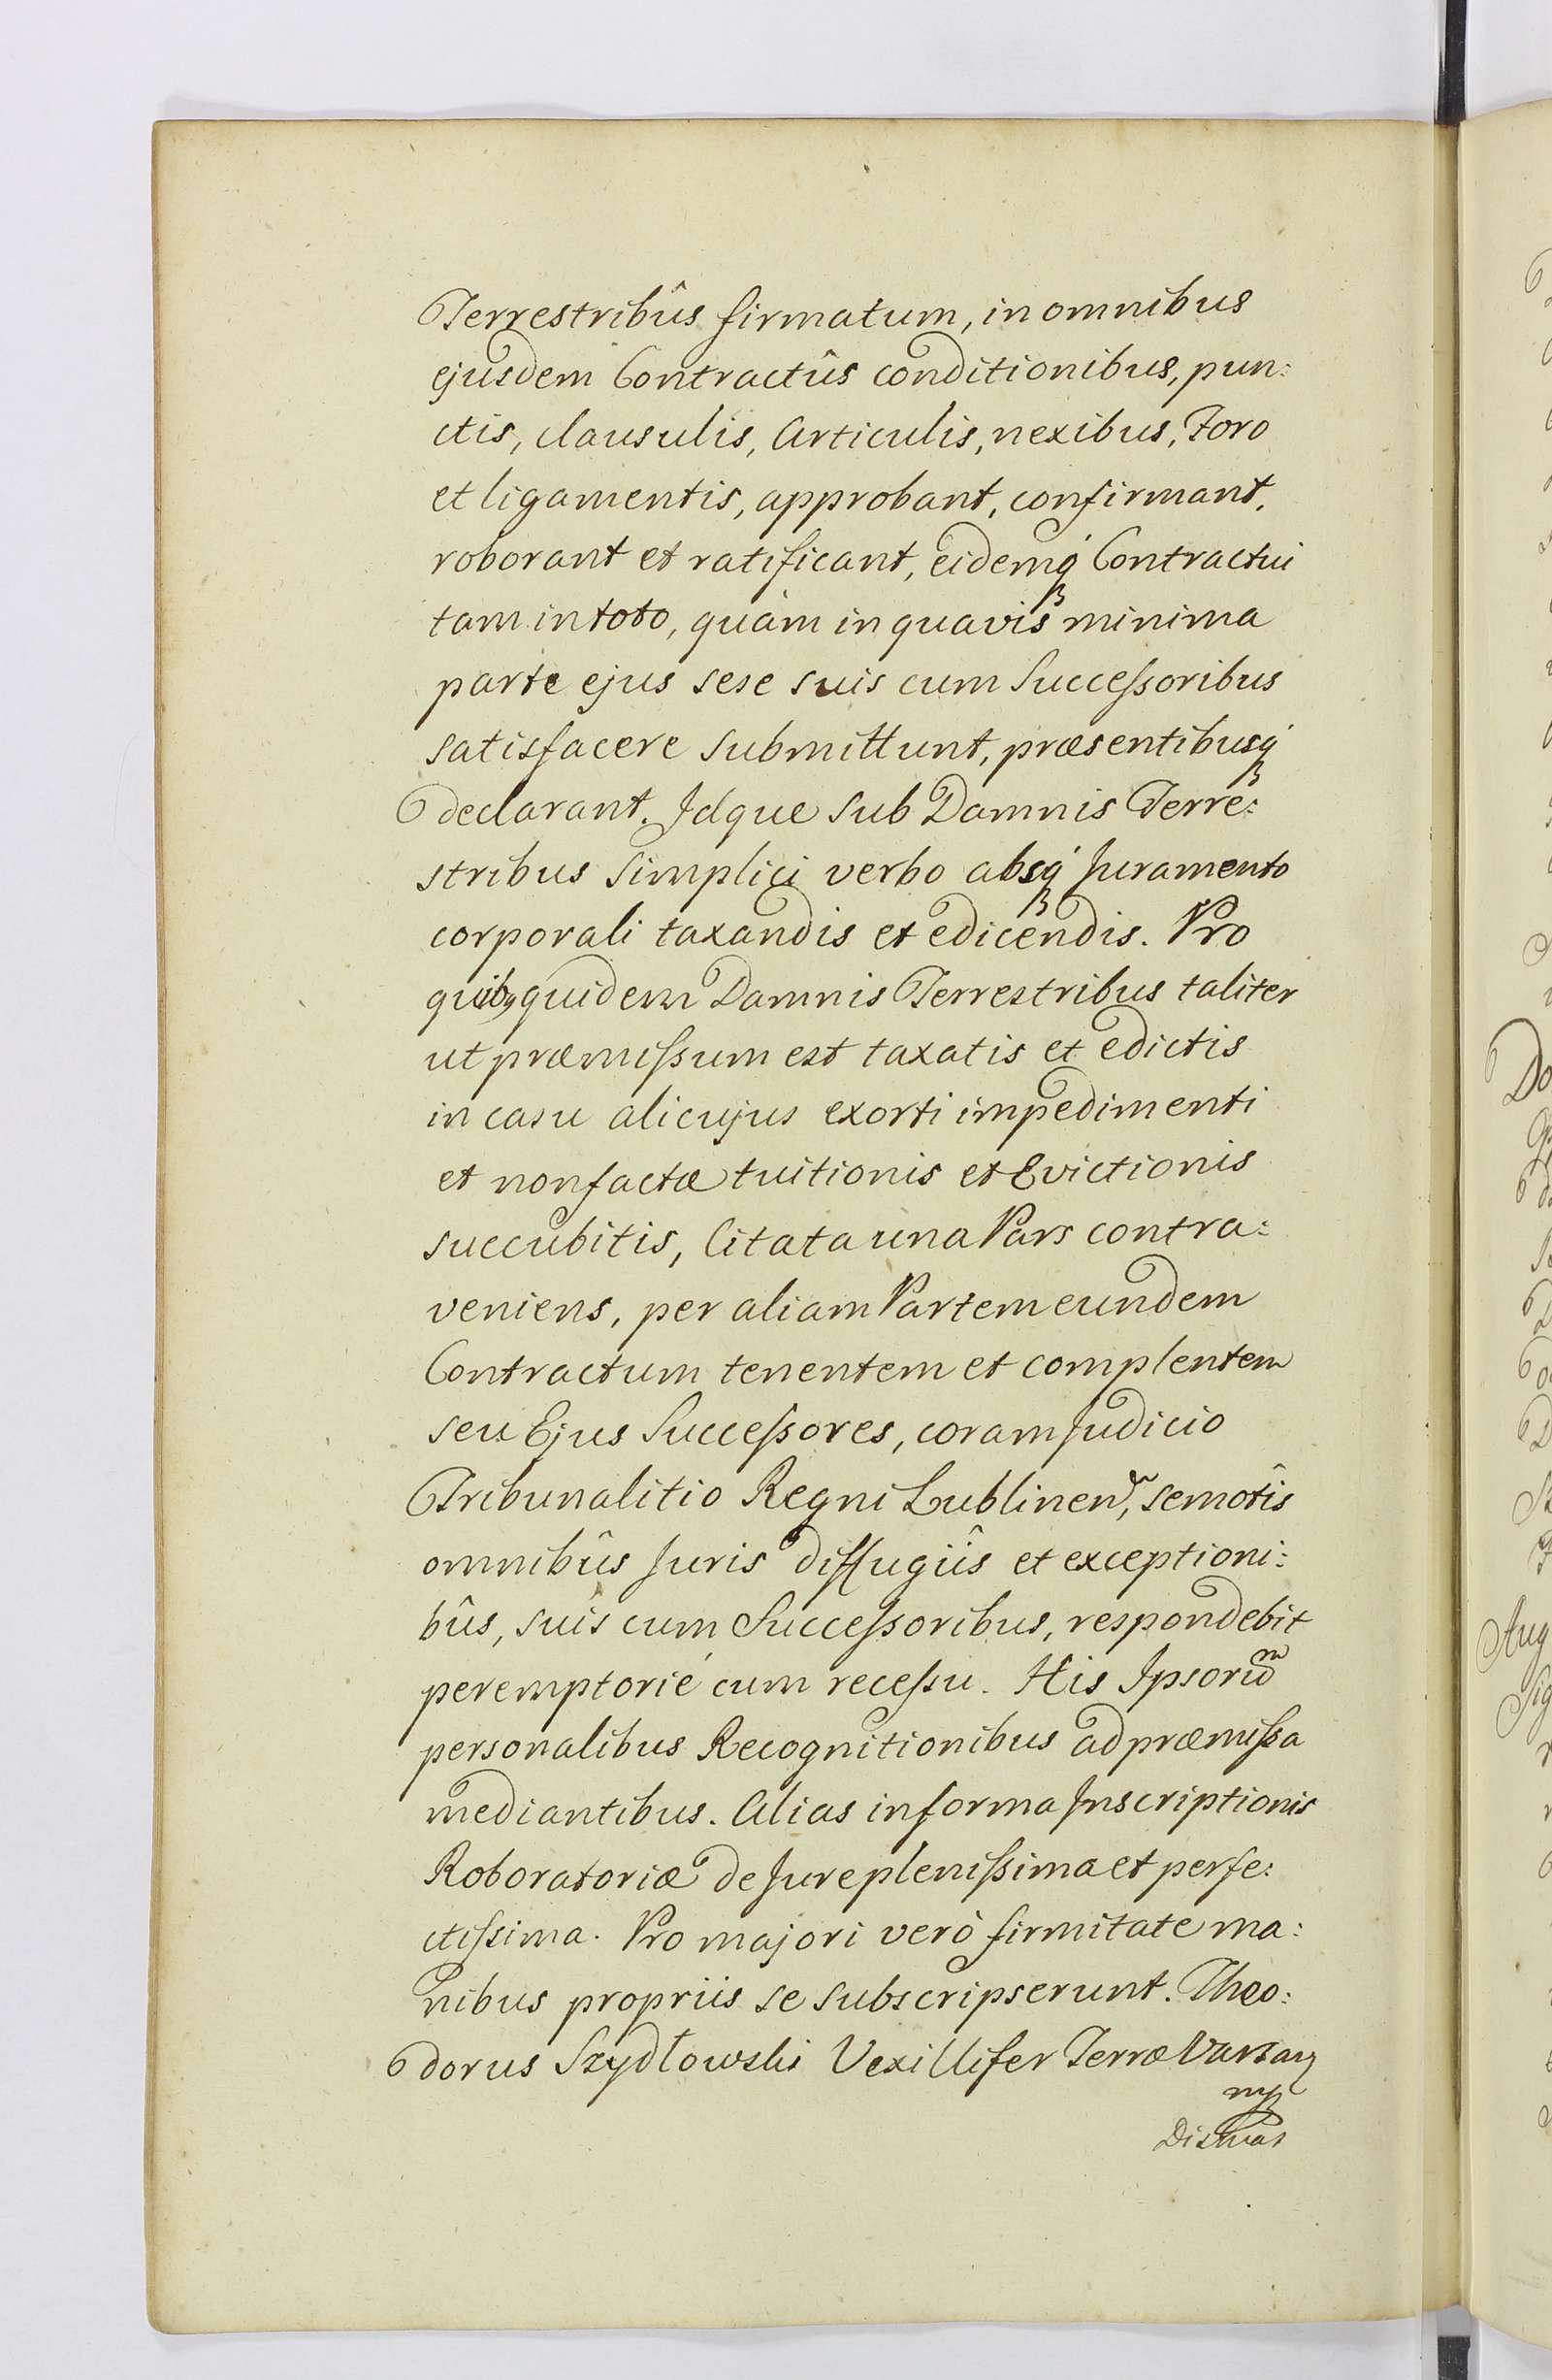 Terrestribûs firmatum, in omnibus
ejusdem Contractûs conditionibus, pun:
ctis, clausulis, Articulis, nexibus, Foro
et ligamentis, approbant, confirmant,
roborant et ratificant, eidemq́ Contractui
tam in toto, quàm in quavis minima
parte ejus sese suis cum Succeſsoribus
satisfacere submittunt, præsentibusq́
declarant. Idque sub Damnis Terre:
stribus simplici verbo absq́ Juramento
corporali taxandis et edicendis. Pro
quibꝰ quidem Damnis Terrestribus taliter
ut præmiſsum est taxatis et edictis
in casu alicujus exorti impedimenti
et non factæ tuitionis et Evictionis
succubitis, Citata una Pars contra:
veniens, per aliam Partem eundem
Contractum tenentem et complentem
seu Ejus Succeſsores, coram Judicio
Tribunalitio Regni Lublinen̄, semotîs
omnibûs Juris diffugiîs et exceptioni:
bûs, suîs cum Succeſsoribus, respondebit
peremptorié cum receſsu. His Ipsoru᷑m
personalibus Recognitionibus ad præmiſsa
mediantibus. Alias in forma Inscriptionis
Roboratoriæ de Jure pleniſsima et perfe:
ctiſsima. Pro majori verò firmitate ma:
nibus propriis se subscripserunt. Theo:
dorus Szydłowski Vexillifer Terræ Varsav
mp
Dismas